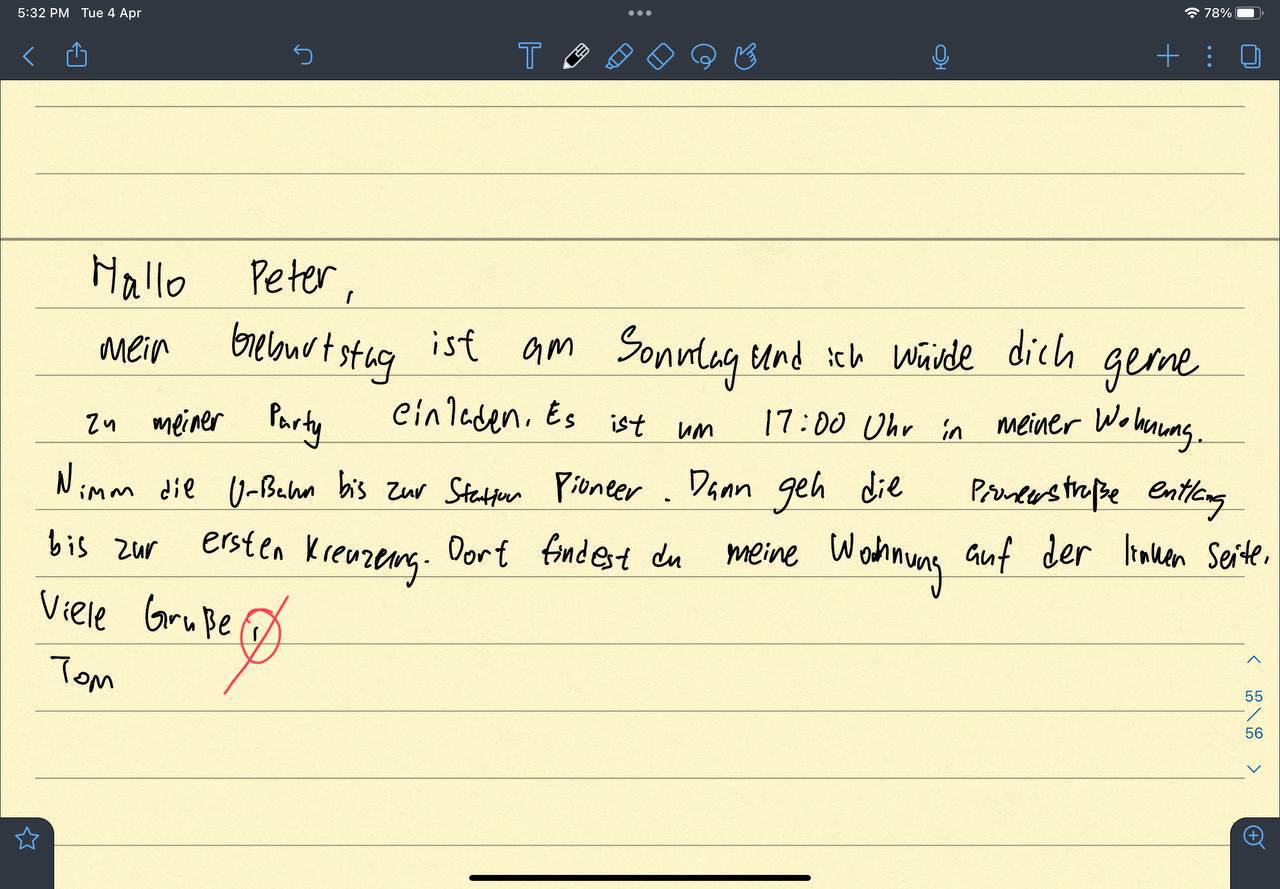 5:32 PM Tue 4 Apr
78%
Hallo Peter,
mein Geburtstag ist am Sonntag und ich würde dich gerne
zu meiner Party einladen. Es ist um 17:00 Uhr in meiner Wohnung.
Nimm die U-Bahn bis zur Station Pioneer. Dann geh die Pioneerstraße entlang
bis zur ersten Kreuzung. Dort findest du meine Wohnung auf der linken Seite.
Viele Gruße,
Tom
55
/
56